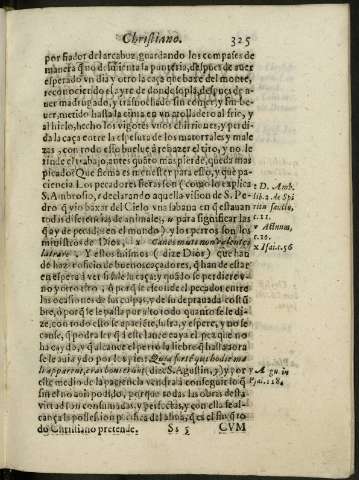 Christiano. 325
por fiador del arcabuz, guardando los compases de
manera q̃ no desquienta la punteria, despues de auer
esperado vn dia y otro la caça que baxe del monte,
reconociendo el ayre de donde sopla, despues de a-
uer madrugado, y trasnochado sin comer, y sin be-
uer, metido hasta la cinta en vn arolladero al frio, y
al hielo, hecho los vigotes vnos chirriones, y perdi-
da la caça entre la espesura de los matorrales y male
zas, con todo esso buelue à rehazer el tiro, y no le
rinde el trabajo, antes quãto mas pierde, queda mas
picado? Que flema es menester para esto, y que pa-
ciencia. Los pecadores fieras son (como lo explica
S. Ambrosio, t declarando aquella vision de S. Pe-
dro q̃ vio baxar del Cielo vna sabana en q̃ estauan
todas diferencias de animales, u para significar las
q̃ ay de pecados en el mundo) y los perros son los
ministros de Dios, x canes muti non valentes
latrare. Y estos mismos (dize Dios) que han
de haz er oficio de buenos caçadores, q̃ han de estar
en espera à ver si sale la caça: y quãdo se perdiere v-
no y otro tiro, ò porq̃ se escõde el pecador entre
las ocasiones de sus culpas, y de su prauada costũ
bre, ò porq̃ se le passa por alto todo quanto se le di-
ze, con todo esso se apaciete, sufra, y espere, y no se
canse, q̃ podra ser q̃ à este lance cayga el pez que no
ha caydo, y q̃ alcance el perro la liebre q̃ hasta aora
se le auia ydo por los pies. Quia forte qui hodie ma
li apparent, cras boni erunt, dize S. Agustin, y) y por
este medio de la paciencia vendrà à conseguir lo q̃
sin el no auia podido, porque todas las obras desta
virtud son consumadas, y perfectas, y con ella se al-
cança la possession pacifica del alma, que es el fin q̃ to
do Christiano pretende. Ss 5 CVM
t D. Amb.
lib. 2. de Spi
ritu sancto,
c. 11.
u Actuum,
c. 10.
x Isai. c. 56
y Aug. in
Psal. 128.